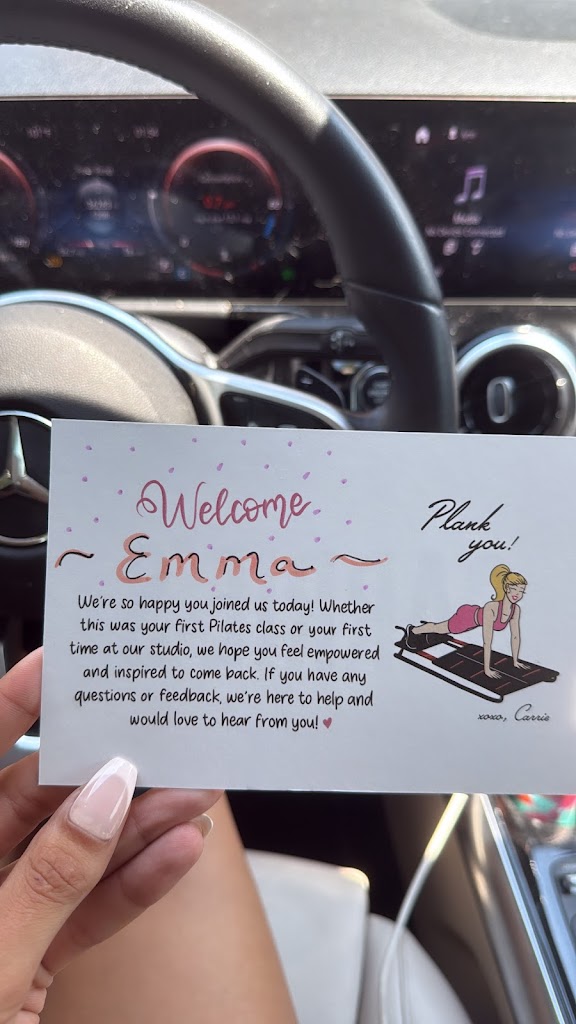 Welcome
~ Emma ~
We're so happy you joined us today! Whether
this was your first Pilates class or your first
time at our studio, we hope you feel empowered
and inspired to come back. If you have any
questions or feedback, we're here to help and
would love to hear from you! ♥
Plank
you!
xoxo, Carrie